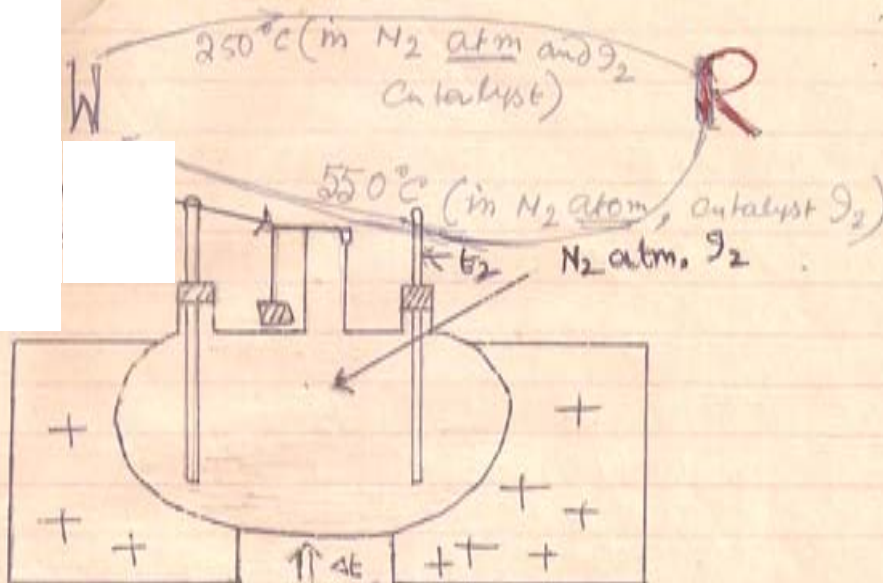 250°C (in N2 atm and I2
Catalyst)
W
R
550°C (in N2 atom, catalyst I2)
t2
N2 atm. I2
Δt